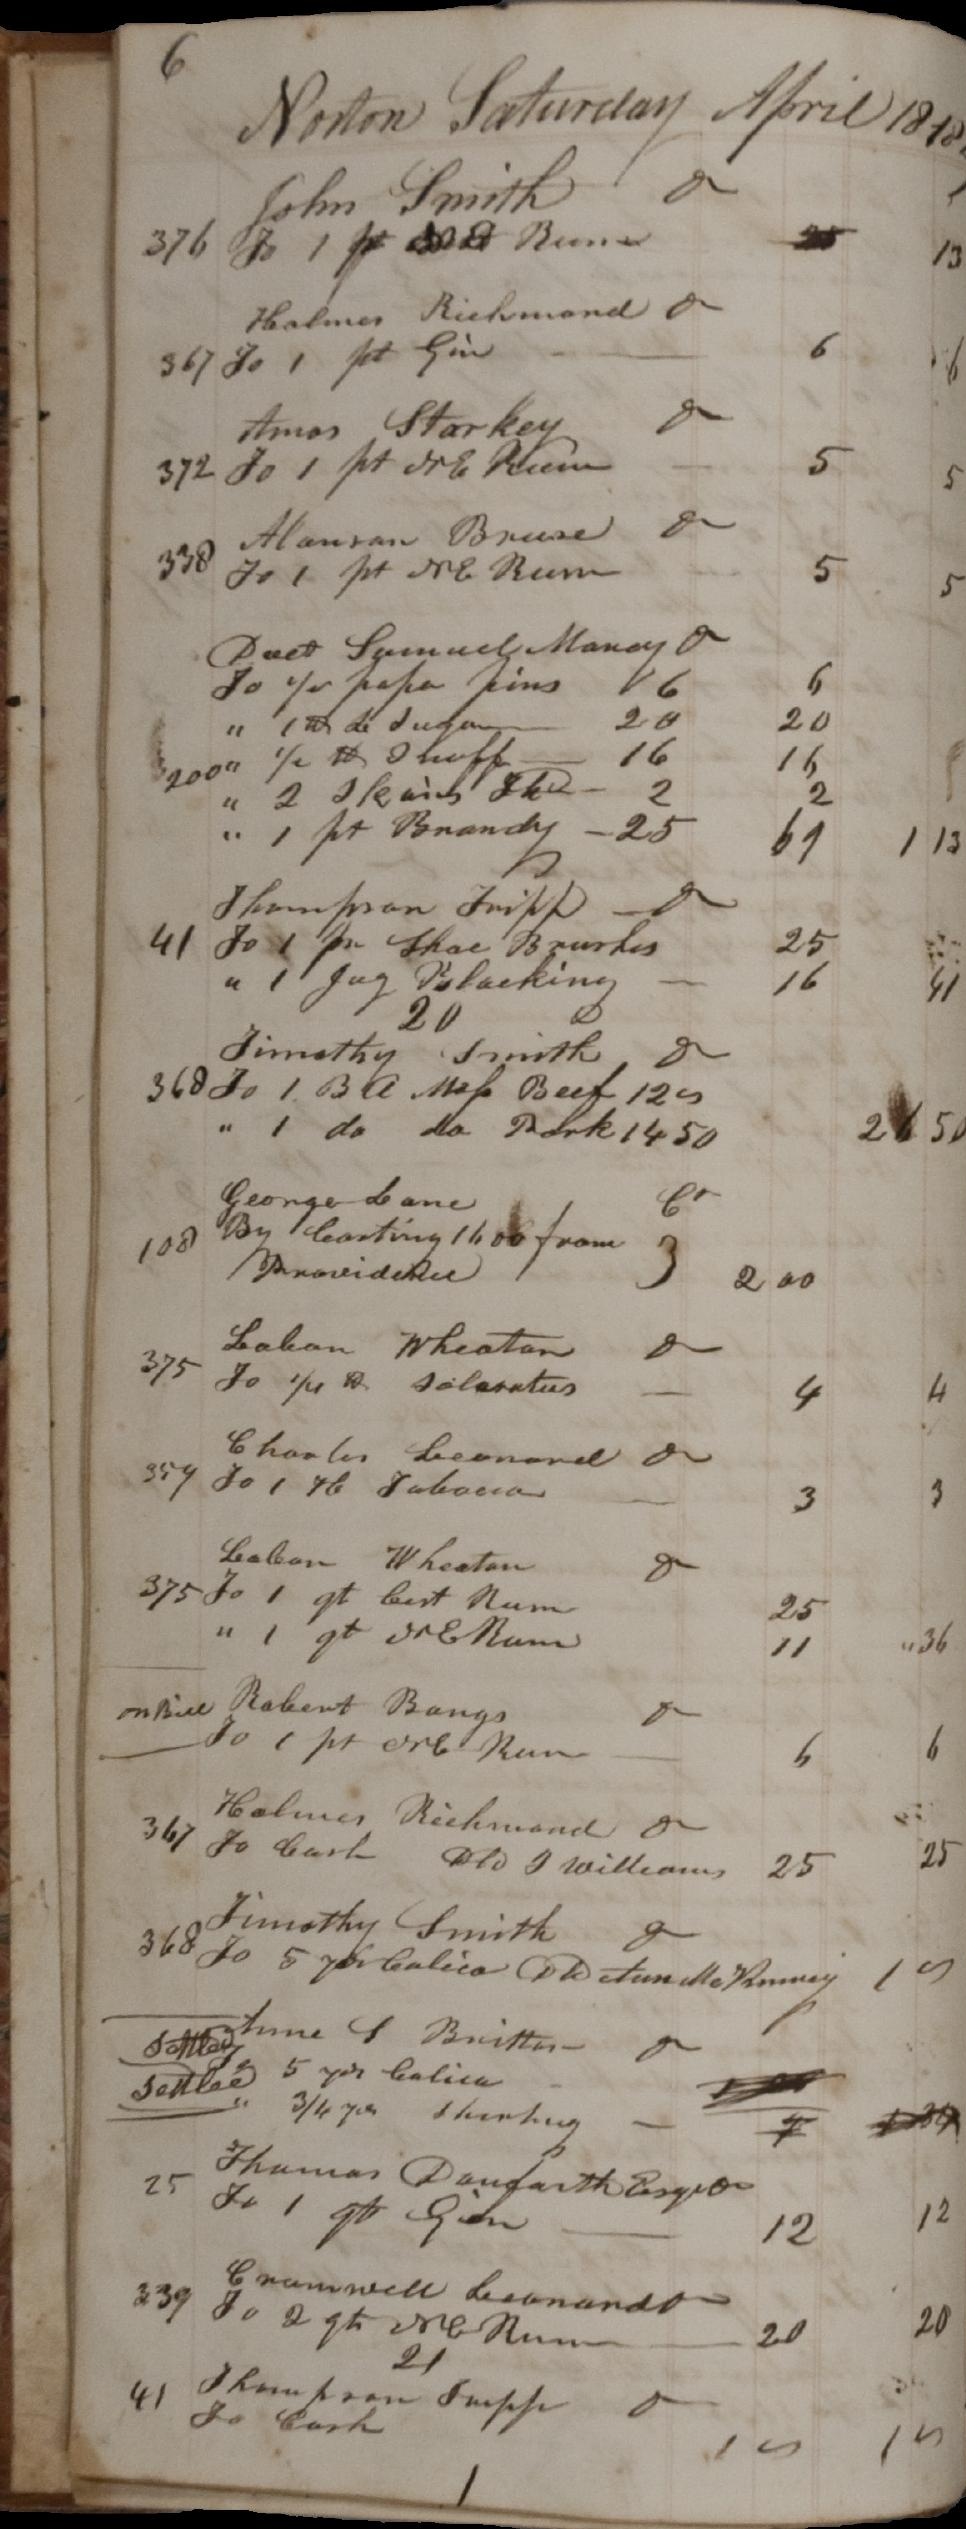 6
Norton Saturday April 18 18
John Smith Dr
376 To 1 pt Rum 13
Holmes Richmond Dr
367 To 1 pt Gin 6 6
Amos Starkey Dr
372 To 1 pt NE Rum 5 5
Alanson Bruse Dr
338 To 1 pt NE Rum 5 5
Doct Samuel Morey Dr
To 1/2 papr pins 6 6
" 1 lb do Sugar 20 20
200 " 1/2 lb Snuff 16 16
" 2 Skains Thd 2 2
" 1 pt Brandy 25 69 1 13
Thompson Tripp Dr
41 To 1 pr Shoe Brushes 25
" 1 Jug Blacking 16 41
20
Timothy Smith Dr
368 To 1 Mess Beef 12
" 1 do do Pork 14 50 26 50
George Lane Cr
108 By Carting 1600 from
Providence } 2 00
Laban Wheaton Dr
375 To 1/4 lb Salaratus 4 4
Charles Leonard Dr
359 To 1 Tobacco 3 3
Laban Wheaton Dr
375 To 1 qt Rum 25
" 1 qt NE Rum 11 " 36
on Bill Robert Bangs Dr
To 1 pt NE Rum 6 6
Holmes Richmond Dr
367 To Cash Dld I Williams 25 25
Timothy Smith Dr
368 To 5 yds Calico Dld 1
S Britton Dr
Settled
Settled 5 yds Calico
" 3/4 yds Shirting 7
Thomas Danforth Esqr Dr
25 To 1 qt Gin 12 12
Cromwell Leonard Dr
339 To 2 qts NE Rum 20 20
21
41 Thompson Tripp Dr
To Cash 1 1
1